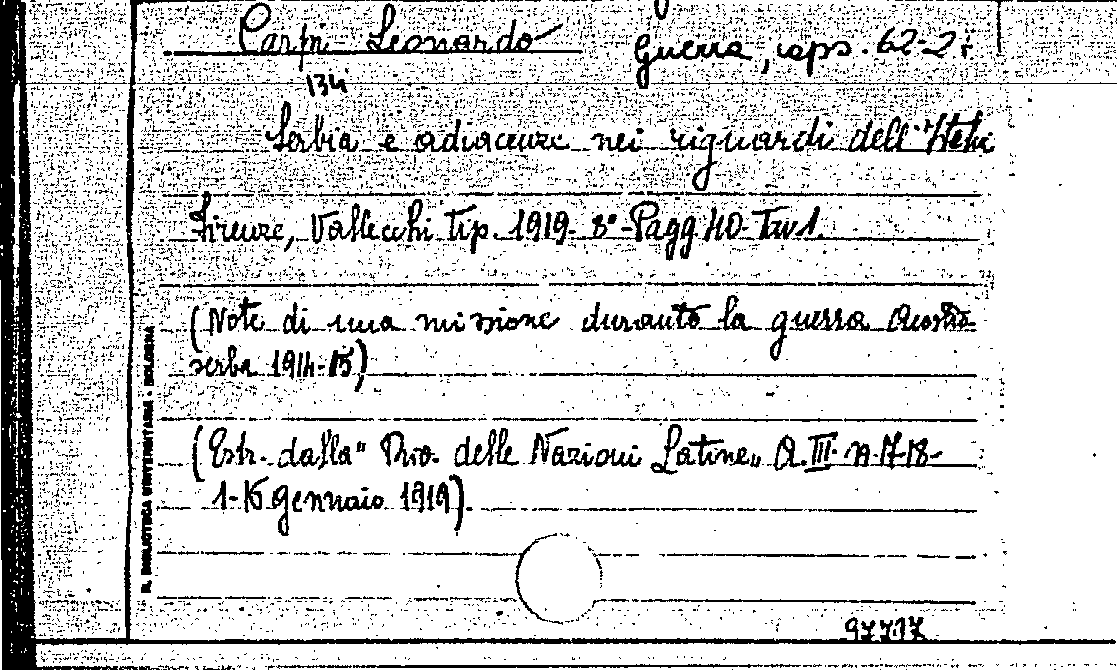 Carpi Leonardo
Guerra, caps. 62-2
134
Serbia e adiacenze nei riguardi dell'
Firenze, Vallecchi Tip. 1919. 8°-Pagg 40-Tav 1.
(Note di una missione durante la guerra Austro-
serba 1914-15)
(Estr. dalla " delle Nazioni Latine„ A. III. n. 17-18-
1-15 gennaio 1919).
R. BIBLIOTECA UNIVERSITARIA - BOLOGNA
97717